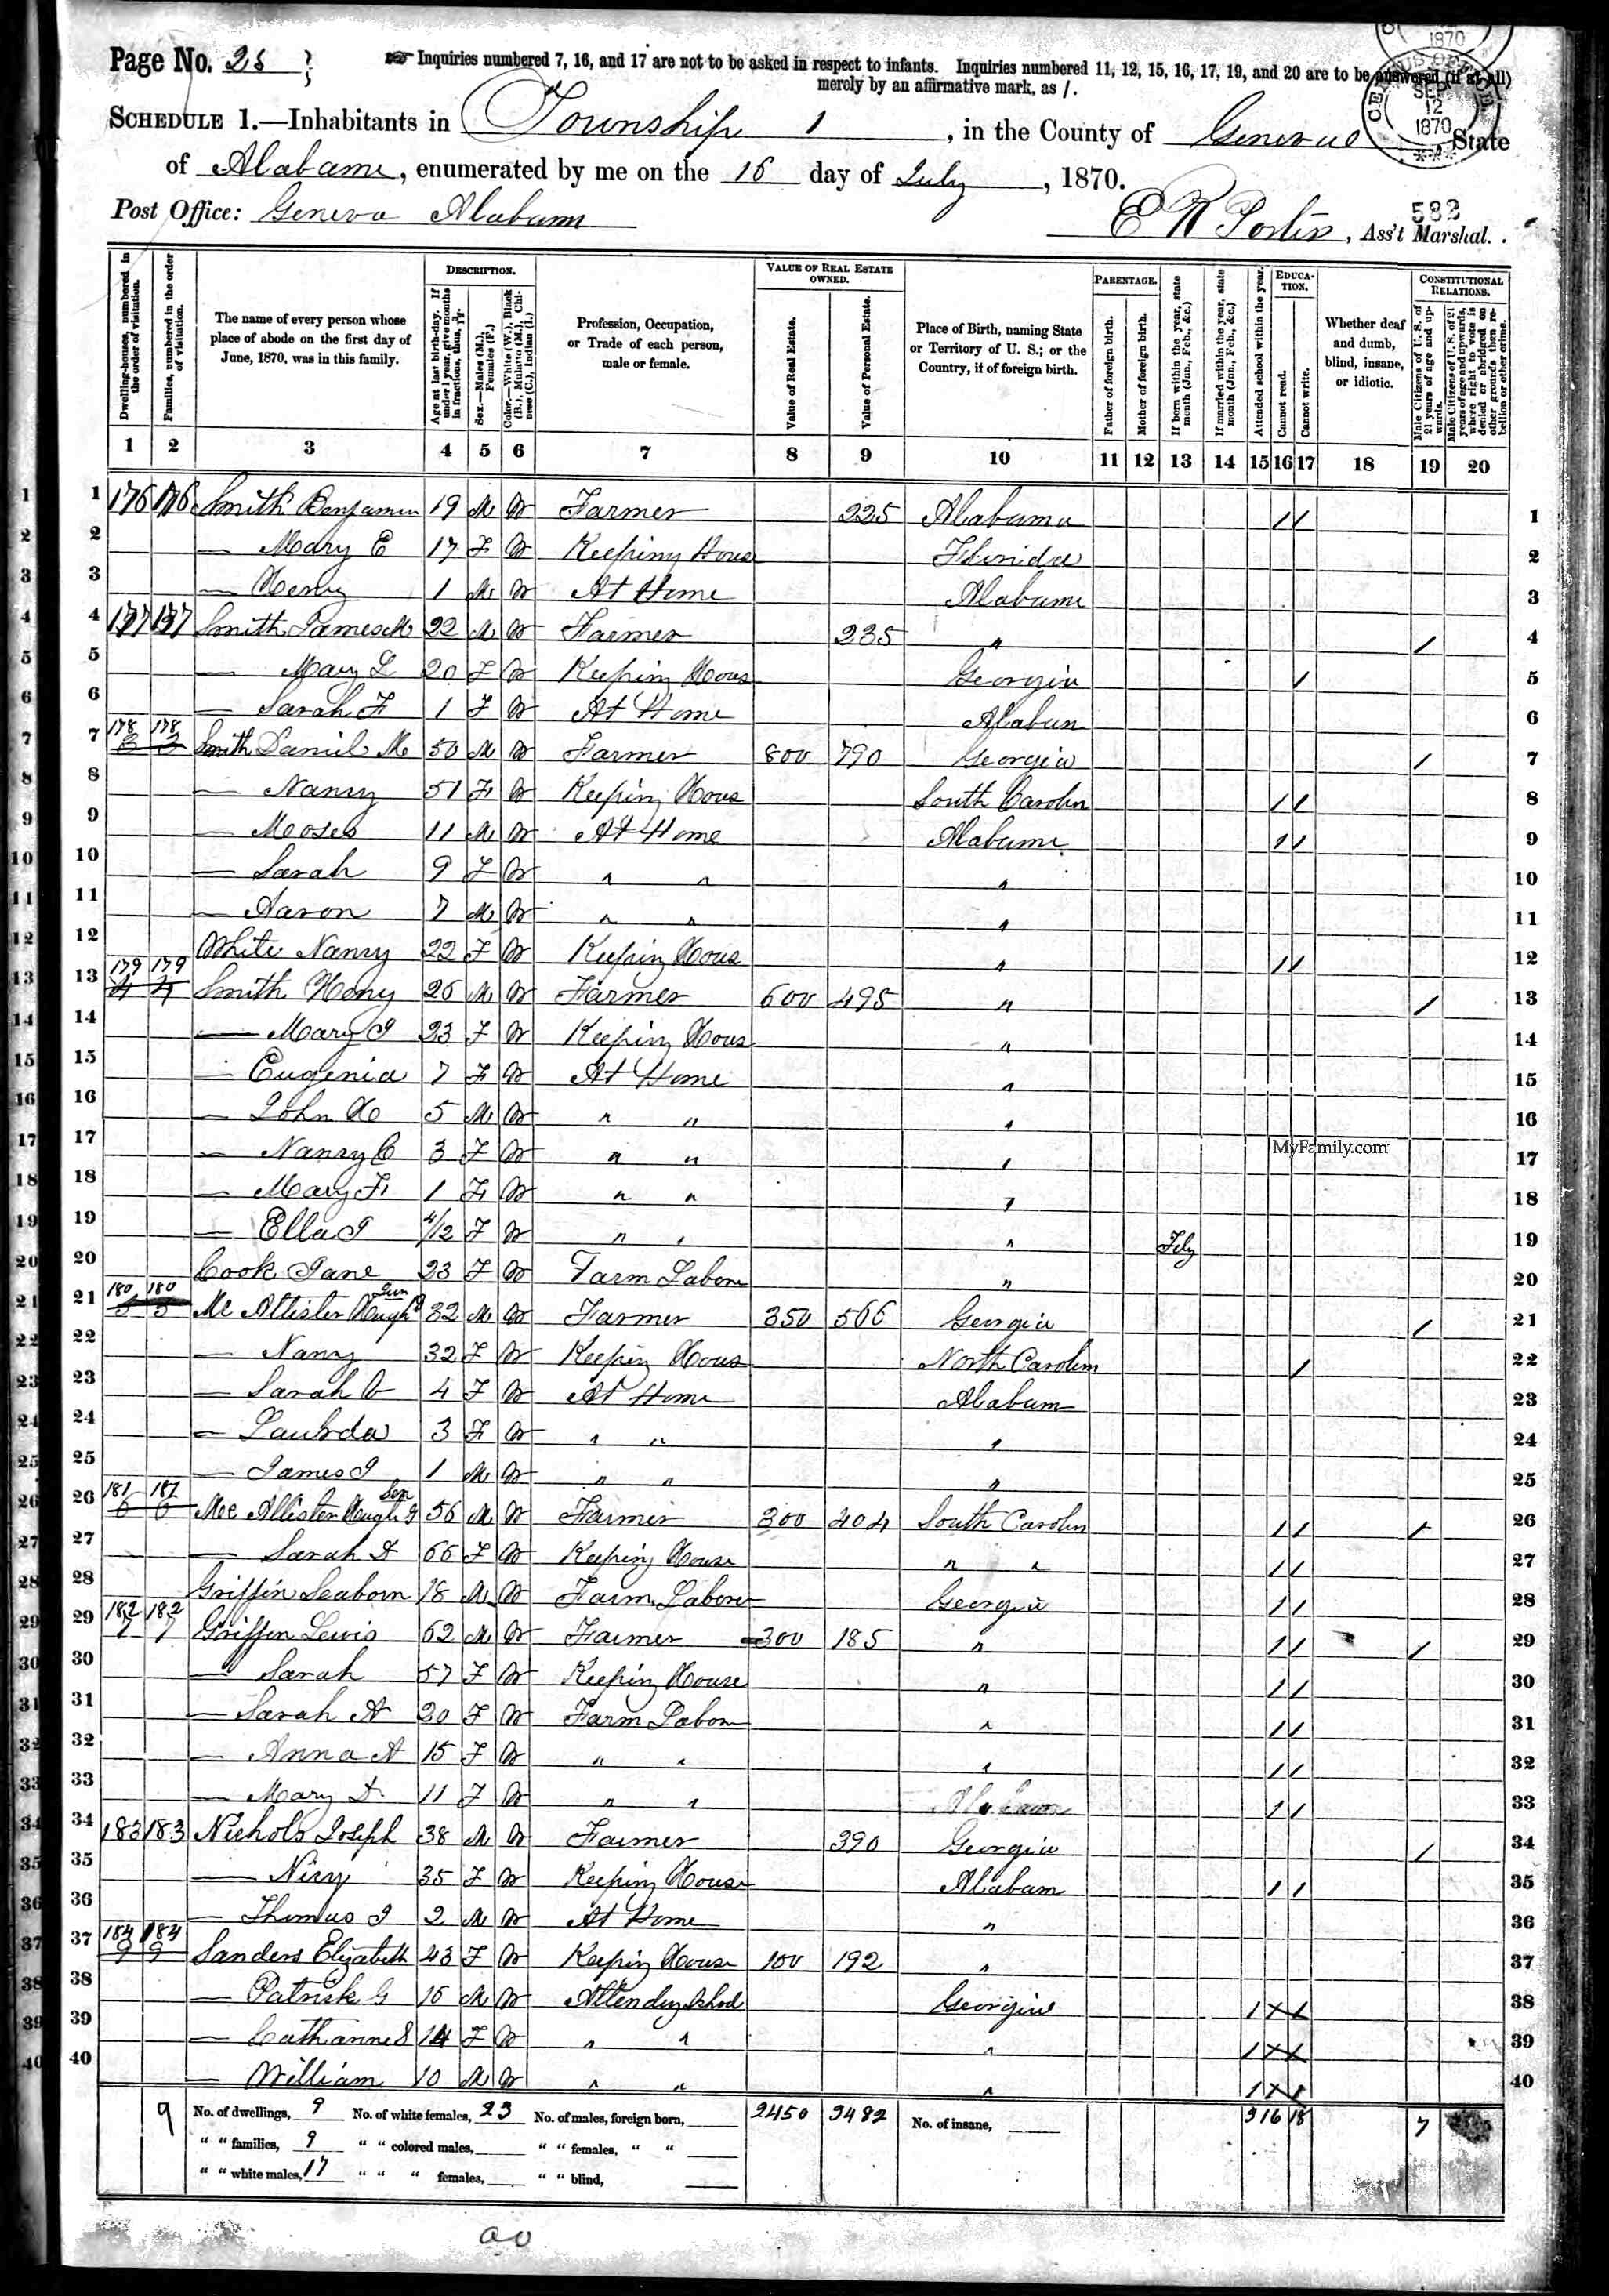 Page No. 28
Inquiries numbered 7, 16, and 17 are not to be asked in respect to infants. Inquiries numbered 11, 12, 15, 16, 17, 19, and 20 are to be answered (if at all)
merely by an affirmative mark, as /.
1870
CENSUS OFFICE.
SEP
12
1870
SCHEDULE 1.—Inhabitants in Township 1, in the County of Geneva State
of Alabama, enumerated by me on the 16 day of July, 1870.
Post Office: Geneva Alabama
583
E R Porter, Ass't Marshal.
Dwelling-houses, numbered in the order of visitation.
Families, numbered in the order of visitation.
The name of every person whose place of abode on the first day of June, 1870, was in this family.
DESCRIPTION.
Age at last birth-day. If under 1 year, give months in fractions, thus,
Sex.—Males (M.), Females (F.)
Color.—White (W.), Black (B.), Mulatto (M.), Chinese (C.), Indian (I.)
Profession, Occupation, or Trade of each person, male or female.
VALUE OF REAL ESTATE OWNED.
Value of Real Estate.
Value of Personal Estate.
Place of Birth, naming State or Territory of U. S.; or the Country, if of foreign birth.
PARENTAGE.
Father of foreign birth.
Mother of foreign birth.
If born within the year, state month (Jan., Feb., &c.)
If married within the year, state month (Jan., Feb., &c.)
Attended school within the year.
EDUCATION.
Cannot read.
Cannot write.
Whether deaf and dumb, blind, insane, or idiotic.
CONSTITUTIONAL RELATIONS.
Male Citizens of U. S. of 21 years of age and upwards.
Male Citizens of U. S. of 21 years of age and upwards, where right to vote is denied or abridged on other grounds than rebellion or other crime.
1 2 3 4 5 6 7 8 9 10 11 12 13 14 15 16 17 18 19 20
1 176 176 Smith Benjamin 19 M W Farmer 225 Alabama / / 1
2 — Mary E 17 F W Keeping Hous Florida 2
3 — Henry 1 M W At Home Alabama 3
4 177 177 Smith James M 22 M W Farmer 235 " / 4
5 — Mary L 20 F W Keeping Hous Georgia / 5
6 — Sarah F 1 F W At Home Alabam 6
7 178 178 Smith Daniel M 50 M W Farmer 800 790 Georgia / 7
8 — Nancy 51 F W Keeping Hous South Carolin / / 8
9 — Moses 11 M W At Home Alabama / / 9
10 — Sarah 9 F W " " " 10
11 — Aaron 7 M W " " " 11
12 White Nancy 22 F W Keeping Hous " / / 12
13 179 179 Smith Henry 26 M W Farmer 600 495 " / 13
14 — Mary J 23 F W Keeping Hous " 14
15 — Eugenia 7 F W At Home " 15
16 — John H 5 M W " " " 16
17 — Nancy C 3 F W " " " 17
MyFamily.com
18 — Mary F 1 F W " " " 18
19 — Ella J 4/12 F W " " " Feby 19
20 Cook Jane 23 F W Farm Labore " 20
21 180 180 Mc Allister Hugh J Jun 32 M W Farmer 350 566 Georgia / 21
22 — Nancy 32 F W Keeping Hous North Carolin / 22
23 — Sarah C 4 F W At Home Alabam 23
24 — 3 F W " " " 24
25 — James J 1 M W " " " 25
26 181 181 Mc Allister Hugh J Sen 56 M W Farmer 300 404 South Carolin / / / 26
27 — Sarah A 66 F W Keeping House " " / / 27
28 Griffin Seaborn 18 M W Farm Laborer Georgia / / 28
29 182 182 Griffin Lewis 62 M W Farmer 300 185 " / / / 29
30 — Sarah 57 F W Keeping House " / / 30
31 — Sarah A 20 F W Farm Labor " / / 31
32 — Anna A 15 F W " " " / / 32
33 — Mary A 11 F W " " Alabama / / 33
34 183 183 Nichols Joseph 38 M W Farmer 390 Georgia / 34
35 — Nicy 35 F W Keeping House Alabam / / 35
36 — Thomas J 2 M W At Home " 36
37 184 184 Sanders Elizabeth 43 F W Keeping House 100 192 " 37
38 — Patrick G 16 M W Attending School Georgia / X X 38
39 — Catharine S 14 F W " " " / X X 39
40 — William 10 M W " " " / X X 40
9 No. of dwellings, 9 No. of white females, 23 No. of males, foreign born, 2450 3482 No. of insane, 3 16 18 7
" " families, 9 " " colored males, " " females, " "
" " white males, 17 " " " females, " " blind,